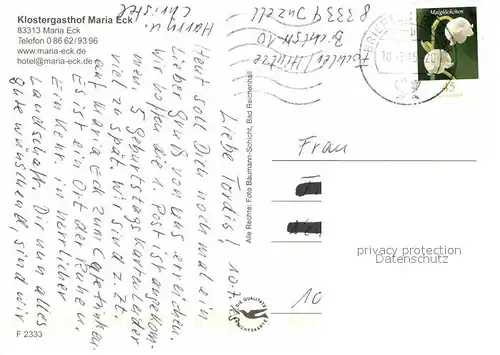 Klostergasthof Maria Eck
83313 Maria Eck
Telefon 0 86 62/93 96
www.maria-eck.de
hotel@maria-eck.de
10.7.
Liebe Tordis!
Heut soll Dich noch mal ein
Lieber Gruß von uns erreichen.
Wir hoffen die 1. Post ist angekom-
men. 5 Geburtstagskarten leider
viel zu spät. Wir sind z. Zt.
auf Maria Eck zum Cafetrinken.
Es ist ein Ort der Ruhe u.
Ein kehr. in herrlicher
Landschaft. Dir nun alles
gute wünschend, sind wir
Harry u.
Christel
F 2333
Alle Rechte: Foto Baumann-Schicht, Bad Reichenhall
DIE QUALITÄTS
ANSICHTSKARTE
83334 Inzell
Maiglöckchen
45
Frau
privacy protection
Datenschutz
10